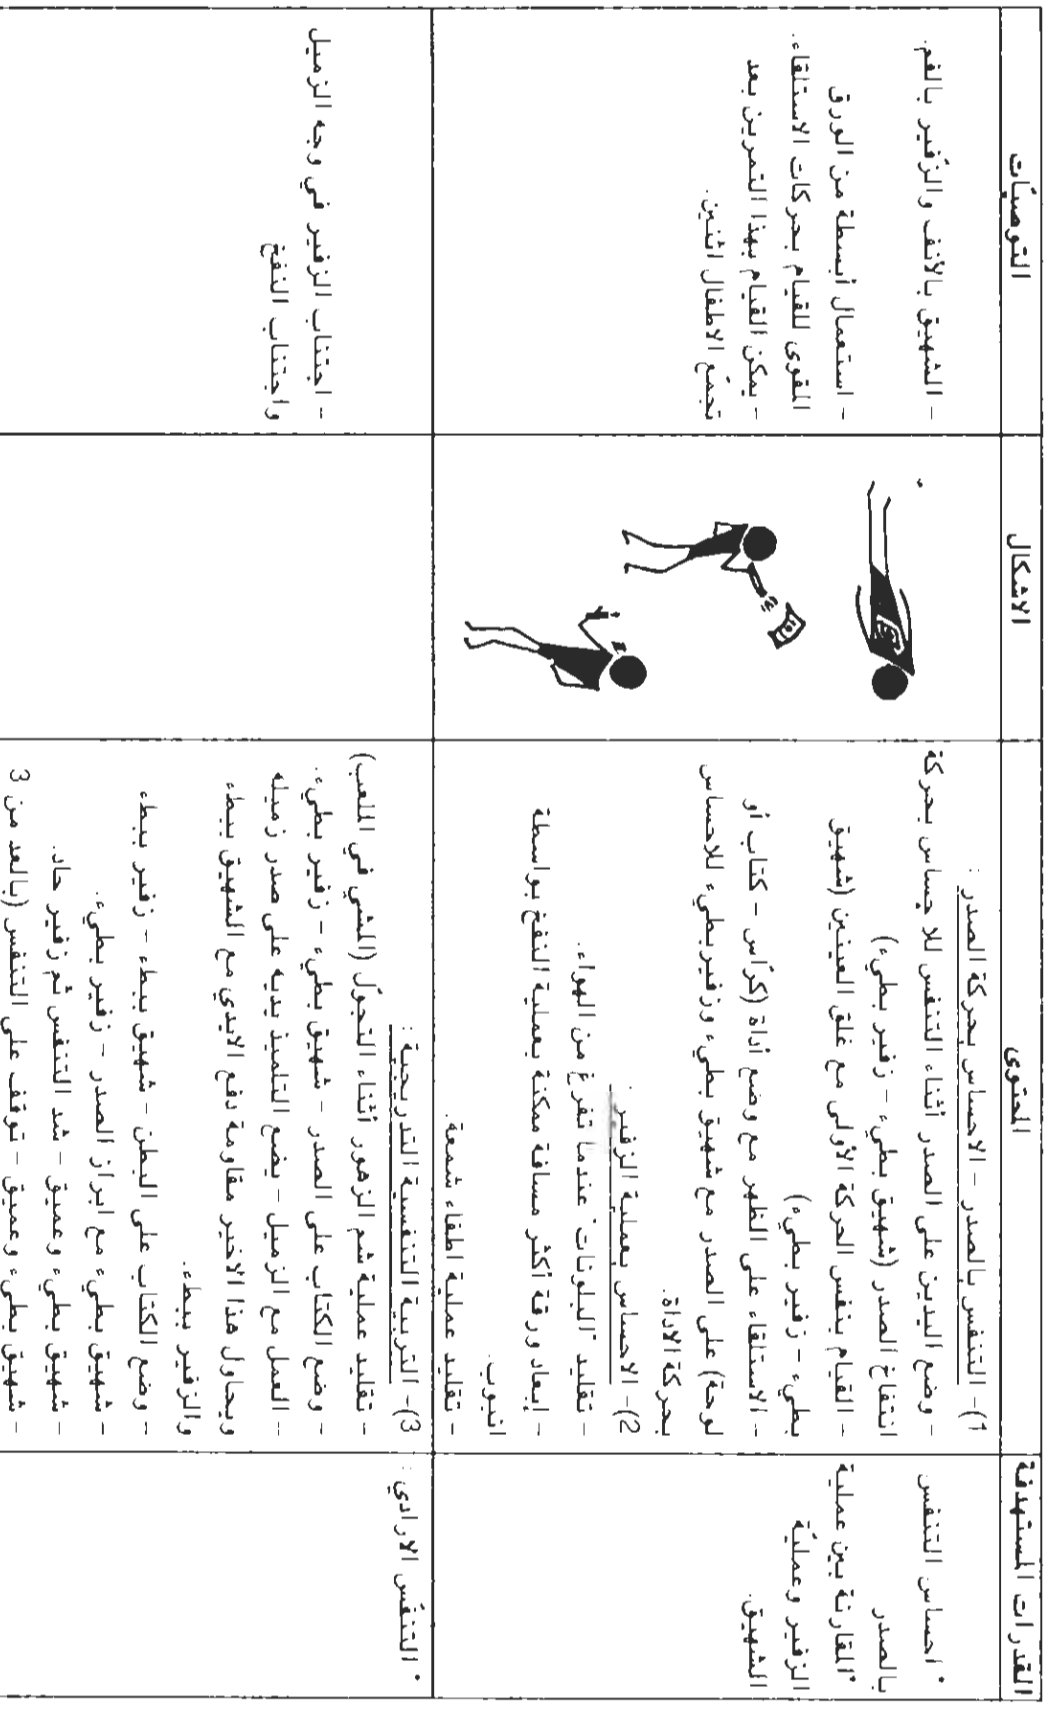 القدرات المستهدفة
المحتوى
الاشكال
التوصيات
* احساس التنفس
بالصدر
* المقارنة بين عملية
الزفير وعمليّة
الشهيق.
1)- التنفس بالصدر - الاحساس بحركة الصدر :
- وضع اليدين على الصدر أثناء التنفس للاحساس بحركة
انتفاخ الصدر (شهيق بطيء - زفير بطيء)
- القيام بنفس الحركة الأولى مع غلق العينين (شهيق
بطيء - زفير بطيء)
- الاستلقاء على الظهر مع وضع أداة (كرّاس - كتاب أو
لوحة) على الصدر مع شهيق بطيء وزفير بطيء للاحساس
بحركة الاداة.
2)- الاحساس بعملية الزفير.
- تقليد "البلونات" عندما تفرغ من الهواء.
- إبعاد ورقة أكثر مسافة ممكنة بعملية النفخ بواسطة
انبوب.
- تقليد عملية اطفاء شمعة.
- الشهيق بالأنف والزّفير بالفم.
- استعمال أبسطة من الورق
المقوى للقيام بحركات الاستلقاء.
- يمكن القيام بهذا التمرين بعد
تجمّع الاطفال اثنين.
* التنفّس الارادي :
3)- التربية التنفسية التدريجية :
- تقليد عملية شم الزهور أثناء التجوّل (المشي في الملعب)
- وضع الكتاب على الصدر - شهيق بطيء - زفير بطيء.
- العمل مع الزميل - يضع التلميذ يديه على صدر زميله
ويحاول هذا الاخير مقاومة دفع الايدي مع الشهيق ببطء
والزفير ببطء.
- وضع الكتاب على البطن - شهيق ببطء - زفير ببطء
- شهيق بطيء مع ابراز الصدر - زفير بطيء.
- شهيق بطيء وعميق - شد التنفس ثم زفير حاد.
- شهيق بطيء وعميق - توقف على التنفس (بالعد من 3
- اجتناب الزفير في وجه الزميل
واجتناب النفخ